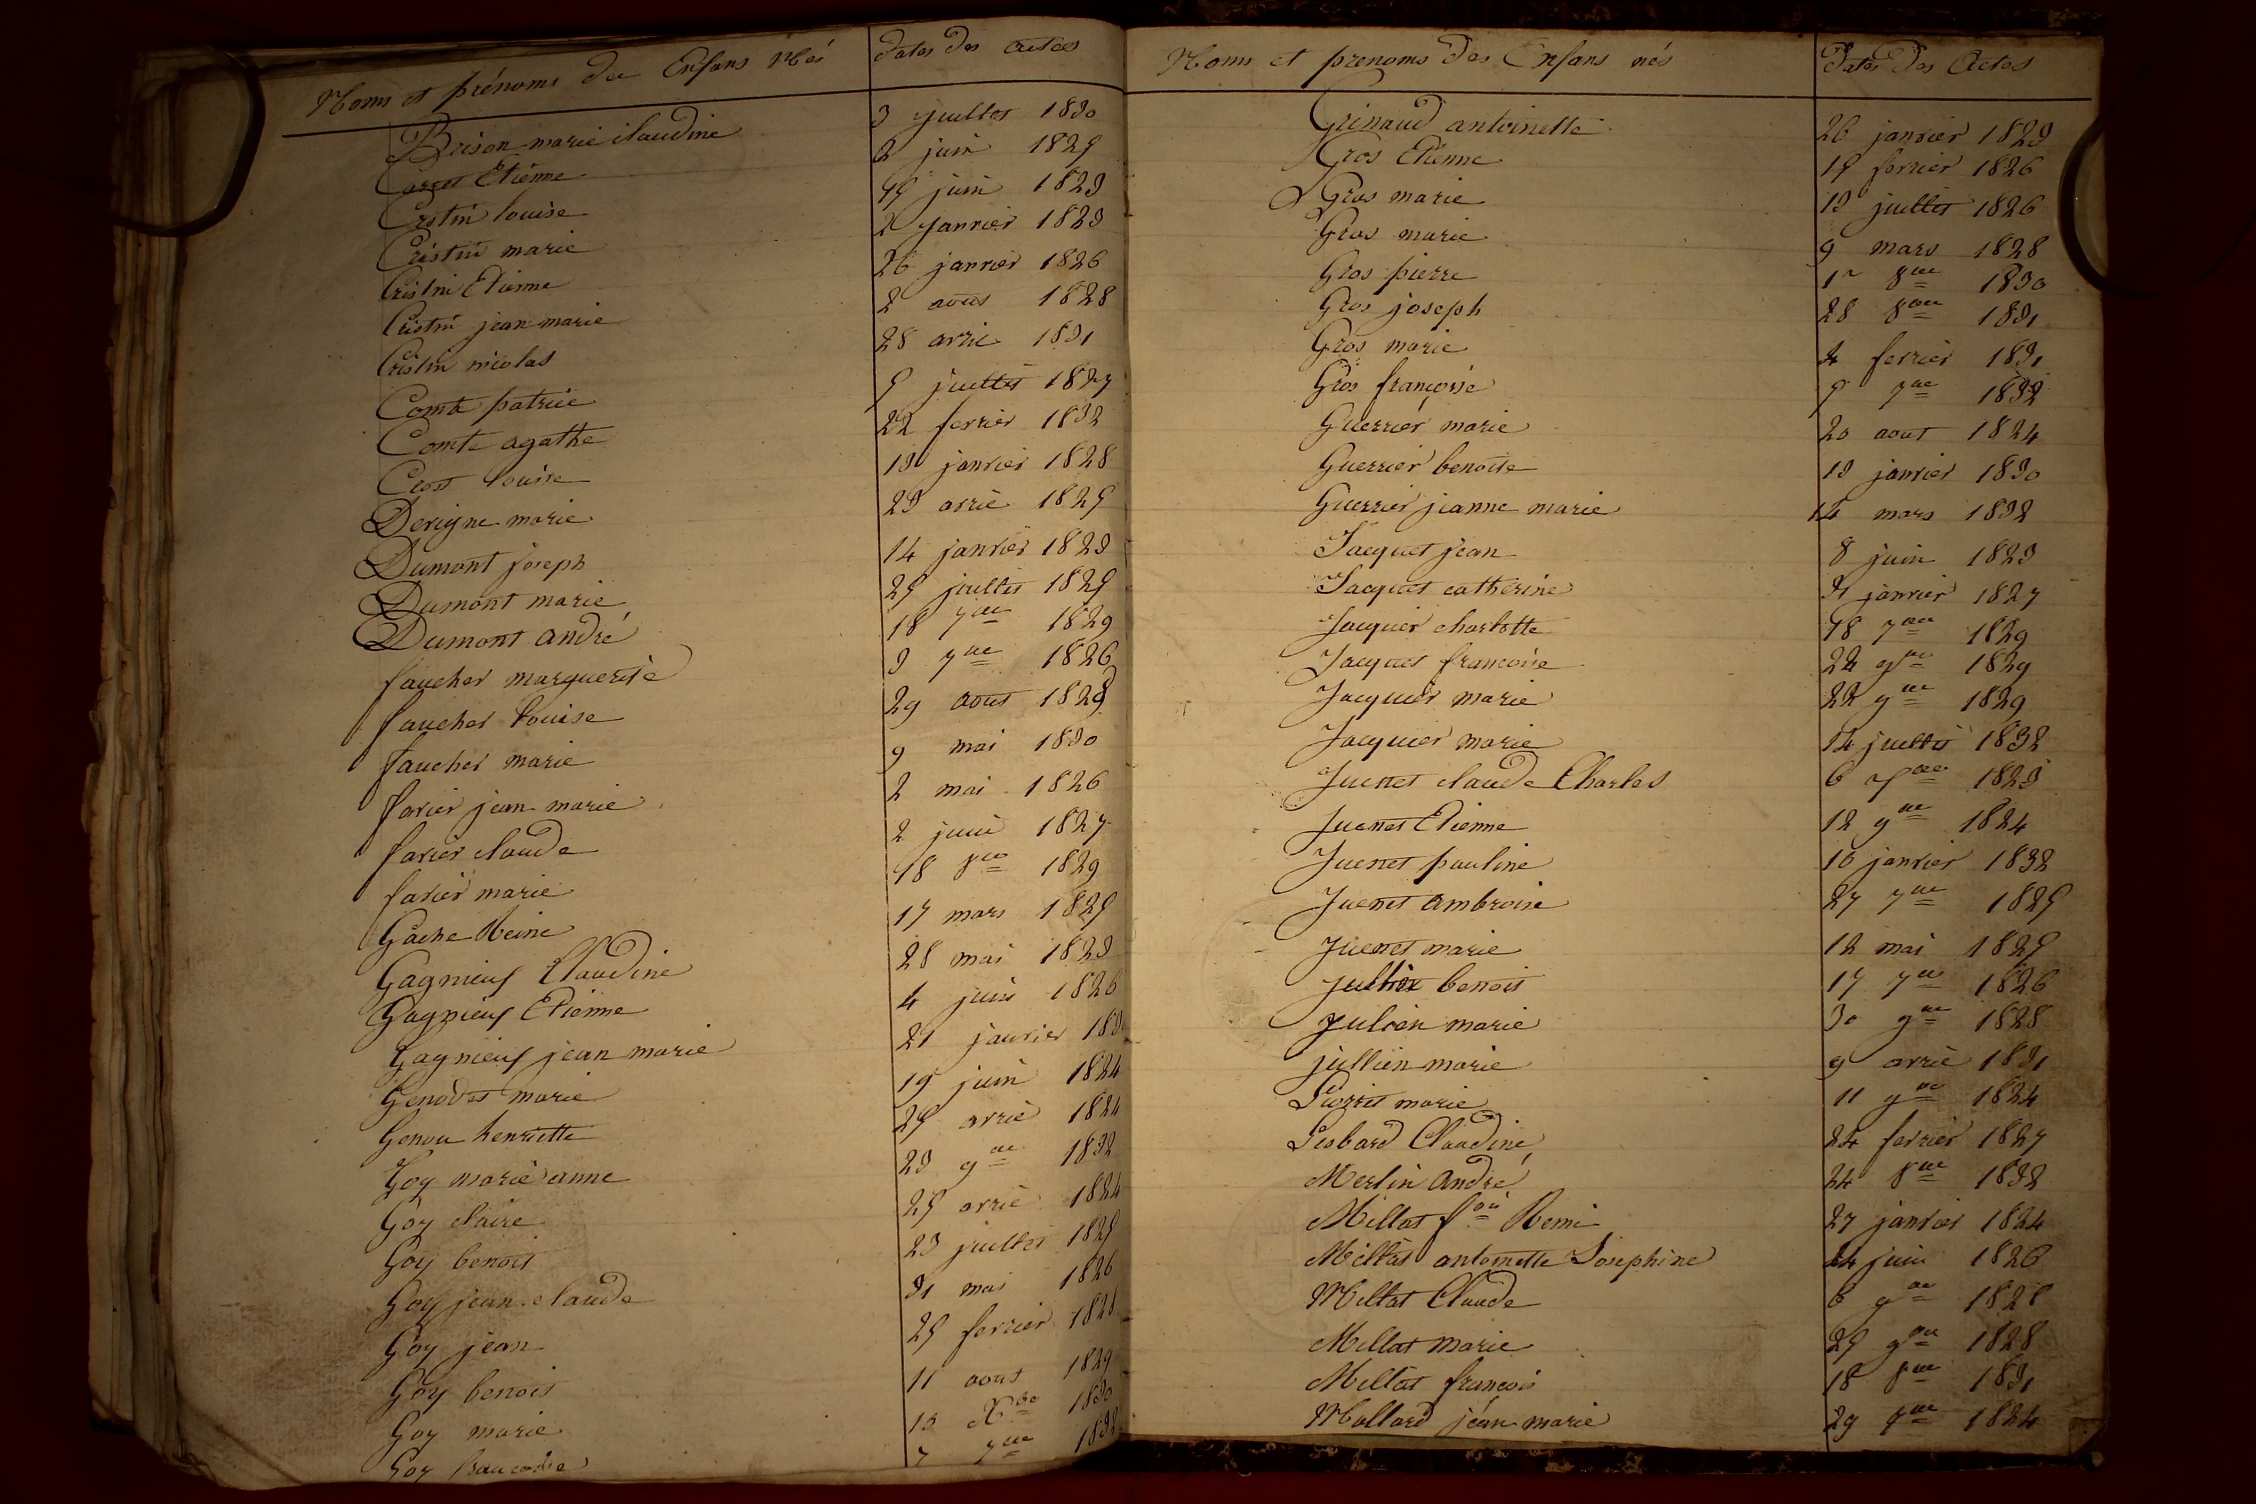 Noms et prénoms des Enfans Nés dates des actes
Brison marie claudine 3 juillet 1830
Carret Etienne 2 juin 1825
Cristin louise 15 juin 1823
Cristin marie 2 janvier 1823
Cristin Etienne 26 janvier 1826
Cristin jean marie 2 aout 1828
Cristin nicolas 28 avril 1831
Comte patrice 5 juillet 1827
Comte agathe 22 fevrier 1832
Crost louise 13 janvier 1828
Derigne marie 23 avril 1825
Dumont joseph 14 janvier 1823
Dumont marie 25 juillet 1825
Dumont andré 18 7bre 1829
faucher marguerite 3 7bre 1826
faucher louise 29 aout 1828
faucher marie 9 mai 1830
favier jean marie 2 mai 1826
favier claude 2 juin 1827
favier marie 18 8bre 1829
Gache Reine 17 mars 1825
Gagnieux Claudine 28 mai 1823
Gagnieux Etienne 4 juin 1826
Gagnieux jean marie 21 janvier
Genodet marie 19 juin 1824
Genou henriette 25 avril 1824
Goy marie anne 23 9bre 1832
Goy claire 25 avril 1824
Goy benoit 23 juillet 1825
Goy jean claude 31 mai 1826
Goy jean 25 fevrier 1828
Goy benoit 11 aout 1829
Goy marie 13 Xbre 1830
Goy francoise 7 7bre 1832
Noms et prenoms des Enfans nés Dates des Actes
Grinaud antoinette 26 janvier 1823
Gros Etienne 15 fevrier 1826
Gros marie 13 juillet 1826
Gros marie 9 mars 1828
Gros pierre 1r 8bre 1830
Gros joseph 28 8bre 1831
Gros marie 4 fevrier 1831
Gros françoise 5 7bre 1832
Guerrier marie 20 aout 1824
Guerrier benoite 13 janvier 1830
Guerrier jeanne marie 14 mars 1832
Jacquet jean 8 juin 1823
Jacquet catherine 31 janvier 1827
Jacquier charlotte 18 7bre 1829
Jacquet francoise 22 9bre 1829
Jacquier marie 22 9bre 1829
Jacquier marie 14 juillet 1832
Juenet claude Charles 6 7bre 1823
Juenet Etienne 12 9bre 1824
Juenet pauline 16 janvier 1832
Juenet ambroise 27 7bre 1825
Juenet marie 12 mai 1825
benoit 17 7bre 1826
Julien marie 30 9bre 1828
jullien marie 9 avril 1831
marie 11 9bre 1824
Liobard Claudine 24 fevrier 1827
Merlin andré 24 8bre 1832
Millat fois Remi 27 janvier 1824
Millat antoinette Josephine 24 juin 1826
Millat Claude 6 9bre
Millat marie 25 9bre 1828
Millat francois 18 8bre 1831
Mollard jean marie 29 7bre 1824